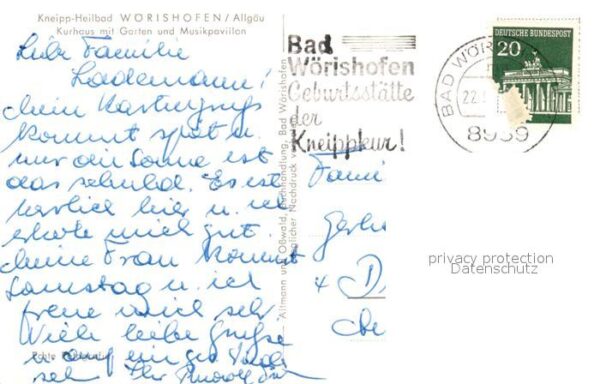 Kneipp-Heilbad WÖRISHOFEN / Allgäu
Kurhaus mit Garten und Musikpavillon
Liebe Familie
Lademann!
Mein Kartengruß
kommt spät u.
nur die Sonne ist
das schuld. Es ist
herrlich hier u. ich
erhole mich gut.
Meine Frau kommt
Samstag u. ich
freue mich sehr.
Viele liebe Grüße
u. auf ein
Echte
Ihr Rudolf
Altmann und Oßwald, Buchhandlung, Bad Wörishofen
Nachdruck
Bad
Wörishofen
Geburtsstätte
der
Kneippkur!
DEUTSCHE BUNDESPOST
20
BAD WÖR
22.
8939
Fami
privacy protection
Datenschutz